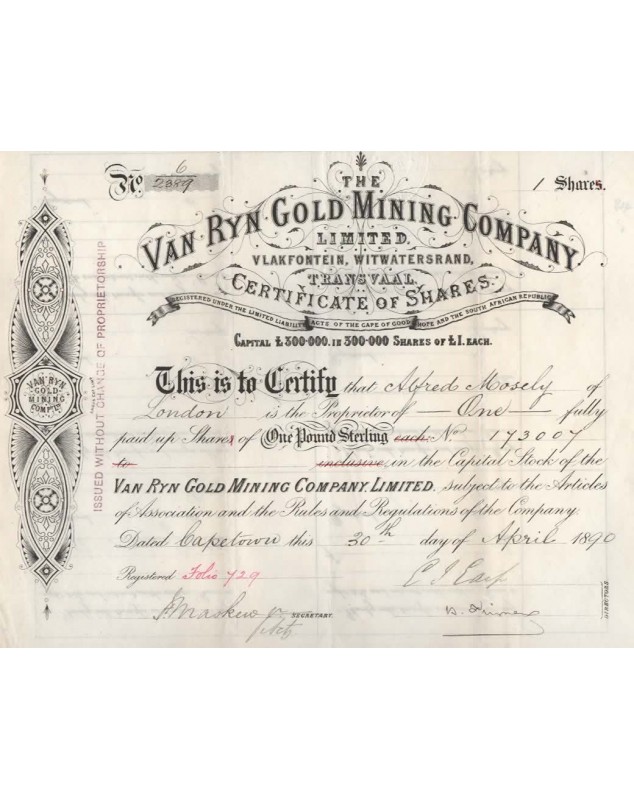 No. 6
2389
1 Shares.
THE
VAN RYN GOLD MINING COMPANY
LIMITED,
VLAKFONTEIN, WITWATERSRAND,
TRANSVAAL.
CERTIFICATE OF SHARES.
REGISTERED UNDER THE LIMITED LIABILITY ACTS OF THE CAPE OF GOOD HOPE AND THE SOUTH AFRICAN REPUBLIC
CAPITAL £300·000. IN 300·000 SHARES OF £1. EACH.
This is to Certify that Alfred Mosely of
London is the Proprietor of — One — fully
paid up Shares of One Pound Sterling each: No. 173007
to inclusive in the Capital Stock of the
VAN RYN GOLD MINING COMPANY, LIMITED, subject to the Articles
of Association and the Rules and Regulations of the Company.
Dated Capetown this 30th day of April 1890
Registered Folio 729
SECRETARY.
DIRECTORS
VAN RYN
GOLD
MINING
ISSUED WITHOUT CHANGE OF PROPRIETORSHIP